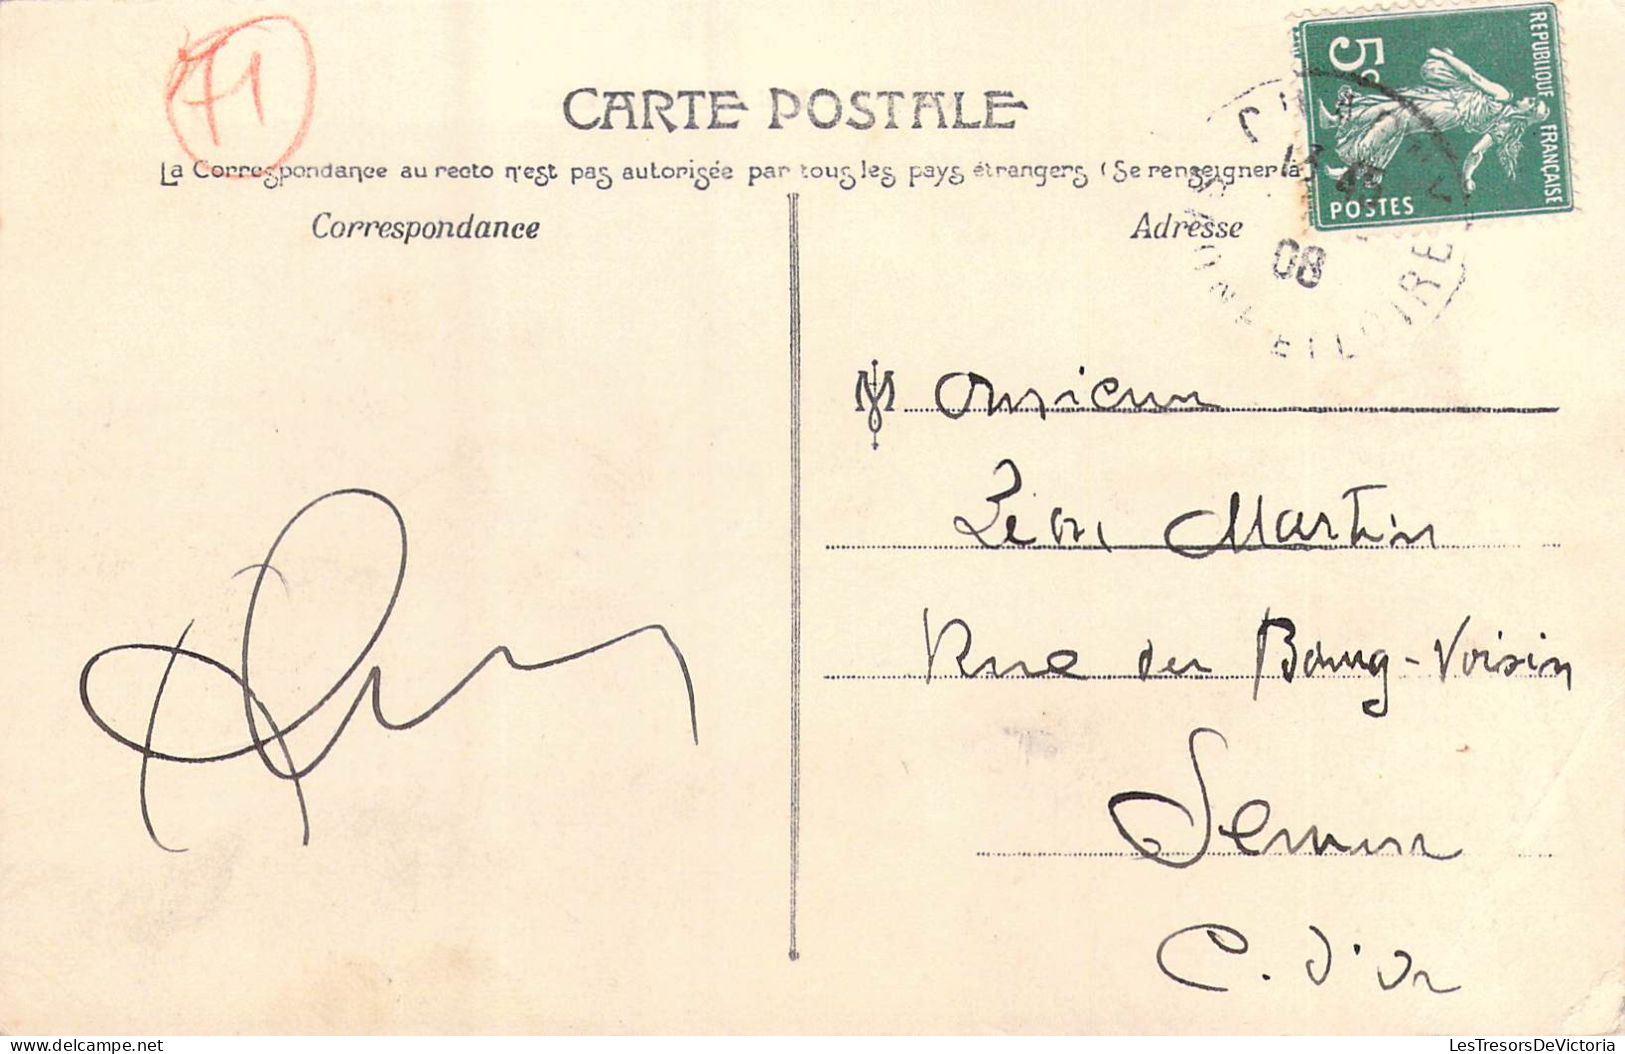 71
CARTE POSTALE
La Correspondance au recto n'est pas autorisée par tous les pays étrangers (Se renseigner à
Correspondance
Adresse
REPUBLIQUE FRANÇAISE
5c
POSTES
08
ET LOIRE
Monsieur
Léon Martin
Rue du Bourg-Voisin
Semur
C. d'Or
delcampe.net
LesTresorsDeVictoria